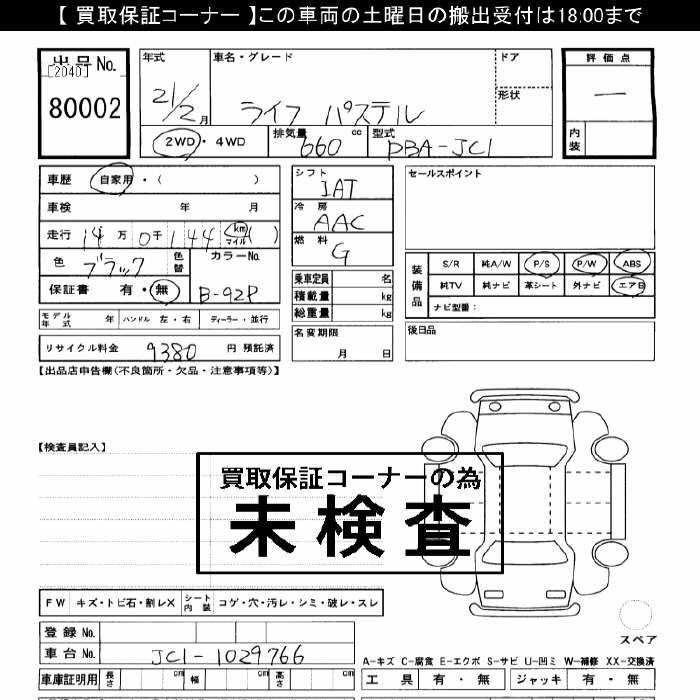 【 買取保証コーナー 】この車両の土曜日の搬出受付は18:00まで
出品No. 年式 車名・グレード ドア 評価点
[2040]
80002 21/2月 ライフ パステル 形状 一
2WD・4WD 排気量 660 cc 型式 DBA-JC1 内装
車歴 自家用・( ) シフト IAT セールスポイント
車検 年 月 冷房 AAC
走行 14万0千144 km マイル ( ) 燃料 G
色 ブラック 色替 カラーNo. B-92P
保証書 有・無
乗車定員 名
積載量 kg
総重量 kg
装備品 S/R 純A/W P/S P/W ABS
純TV 純ナビ 革シート 外ナビ エアB
ナビ型番:
モデル年式 年 ハンドル 左・右 ディーラー・並行
名変期限 月 日
後日品
リサイクル料金 9380 円 預託済
【出品店申告欄(不良箇所・欠品・注意事項等)】
【検査員記入】
買取保証コーナーの為
未検査
FW キズ・トビ石・割レX シート内装 コゲ・穴・汚レ・シミ・破レ・スレ
スペア
登録No.
車台No. JC1-1029766
A-キズ C-腐食 E-エクボ S-サビ U-凹ミ W-補修 XX-交換済
車庫証明用 長さ cm 幅 cm 高さ cm 工具 有・無 ジャッキ 有・無